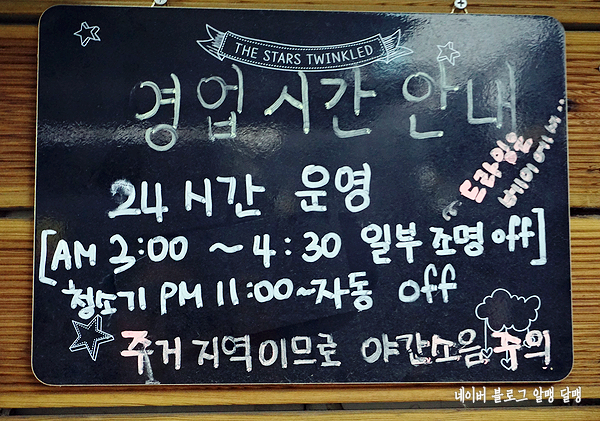 THE STARS TWINKLED
영업시간 안내
24시간 운영
"드라잉은
베이에서..
[AM 3:00 ~ 4:30 일부 조명 off]
청소기 PM 11:00~자동 off
주거지역이므로 야간소음 주의
네이버 블로그 알맹 달맹